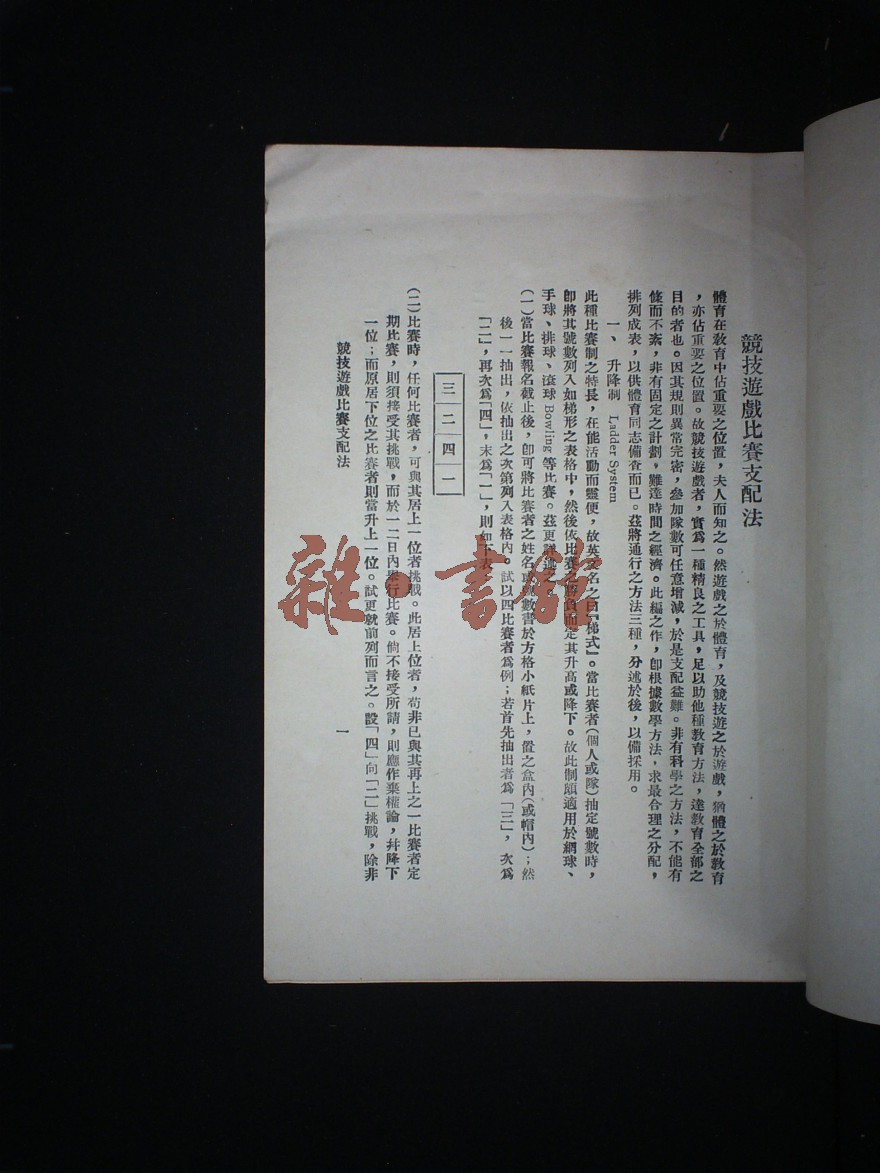 競技遊戲比賽支配法
體育在敎育中佔重要之位置，夫人而知之。然遊戲之於體育，及競技遊之於遊戲，猶體之於敎育
，亦佔重要之位置。故競技遊戲者，實爲一種精良之工具，足以助他種敎育方法，達敎育全部之
目的者也。因其規則異常完密，參加隊數可任意增減，於是支配益難。非有科學之方法，不能有
條而不紊，非有固定之計劃，難達時間之經濟。此編之作，卽根據數學方法，求最合理之分配，
排列成表，以供體育同志備查而已。茲將通行之方法三種，分述於後，以備採用。
一、 升降制 Ladder System
此種比賽制之特長，在能活動而靈便，故英文名之曰『梯式』。當比賽者（個人或隊）抽定號數時，
卽將其號數列入如梯形之表格中，然後依比賽之勝負而定其升高或降下。故此制頗適用於網球、
手球、排球、滾球 Bowling 等比賽。茲更詳述之
（一）當比賽報名截止後，卽可將比賽者之姓名或號數書於方格小紙片上，置之盒內（或帽內）；然
後一一抽出，依抽出之次第列入表格內。試以四比賽者爲例；若首先抽出者爲「三」，次爲
「二」，再次爲「四」，末爲「一」，則如下表
三
二
四
一
（二）比賽時，任何比賽者，可與其居上一位者挑戰。此居上位者，苟非已與其再上之一比賽者定
期比賽，則須接受其挑戰，而於一二日內舉行比賽。倘不接受所請，則應作棄權論，幷降下
一位；而原居下位之比賽者則當升上一位。試更就前列而言之。設「四」向「二」挑戰，除非
競技遊戲比賽支配法
一
雜·書館